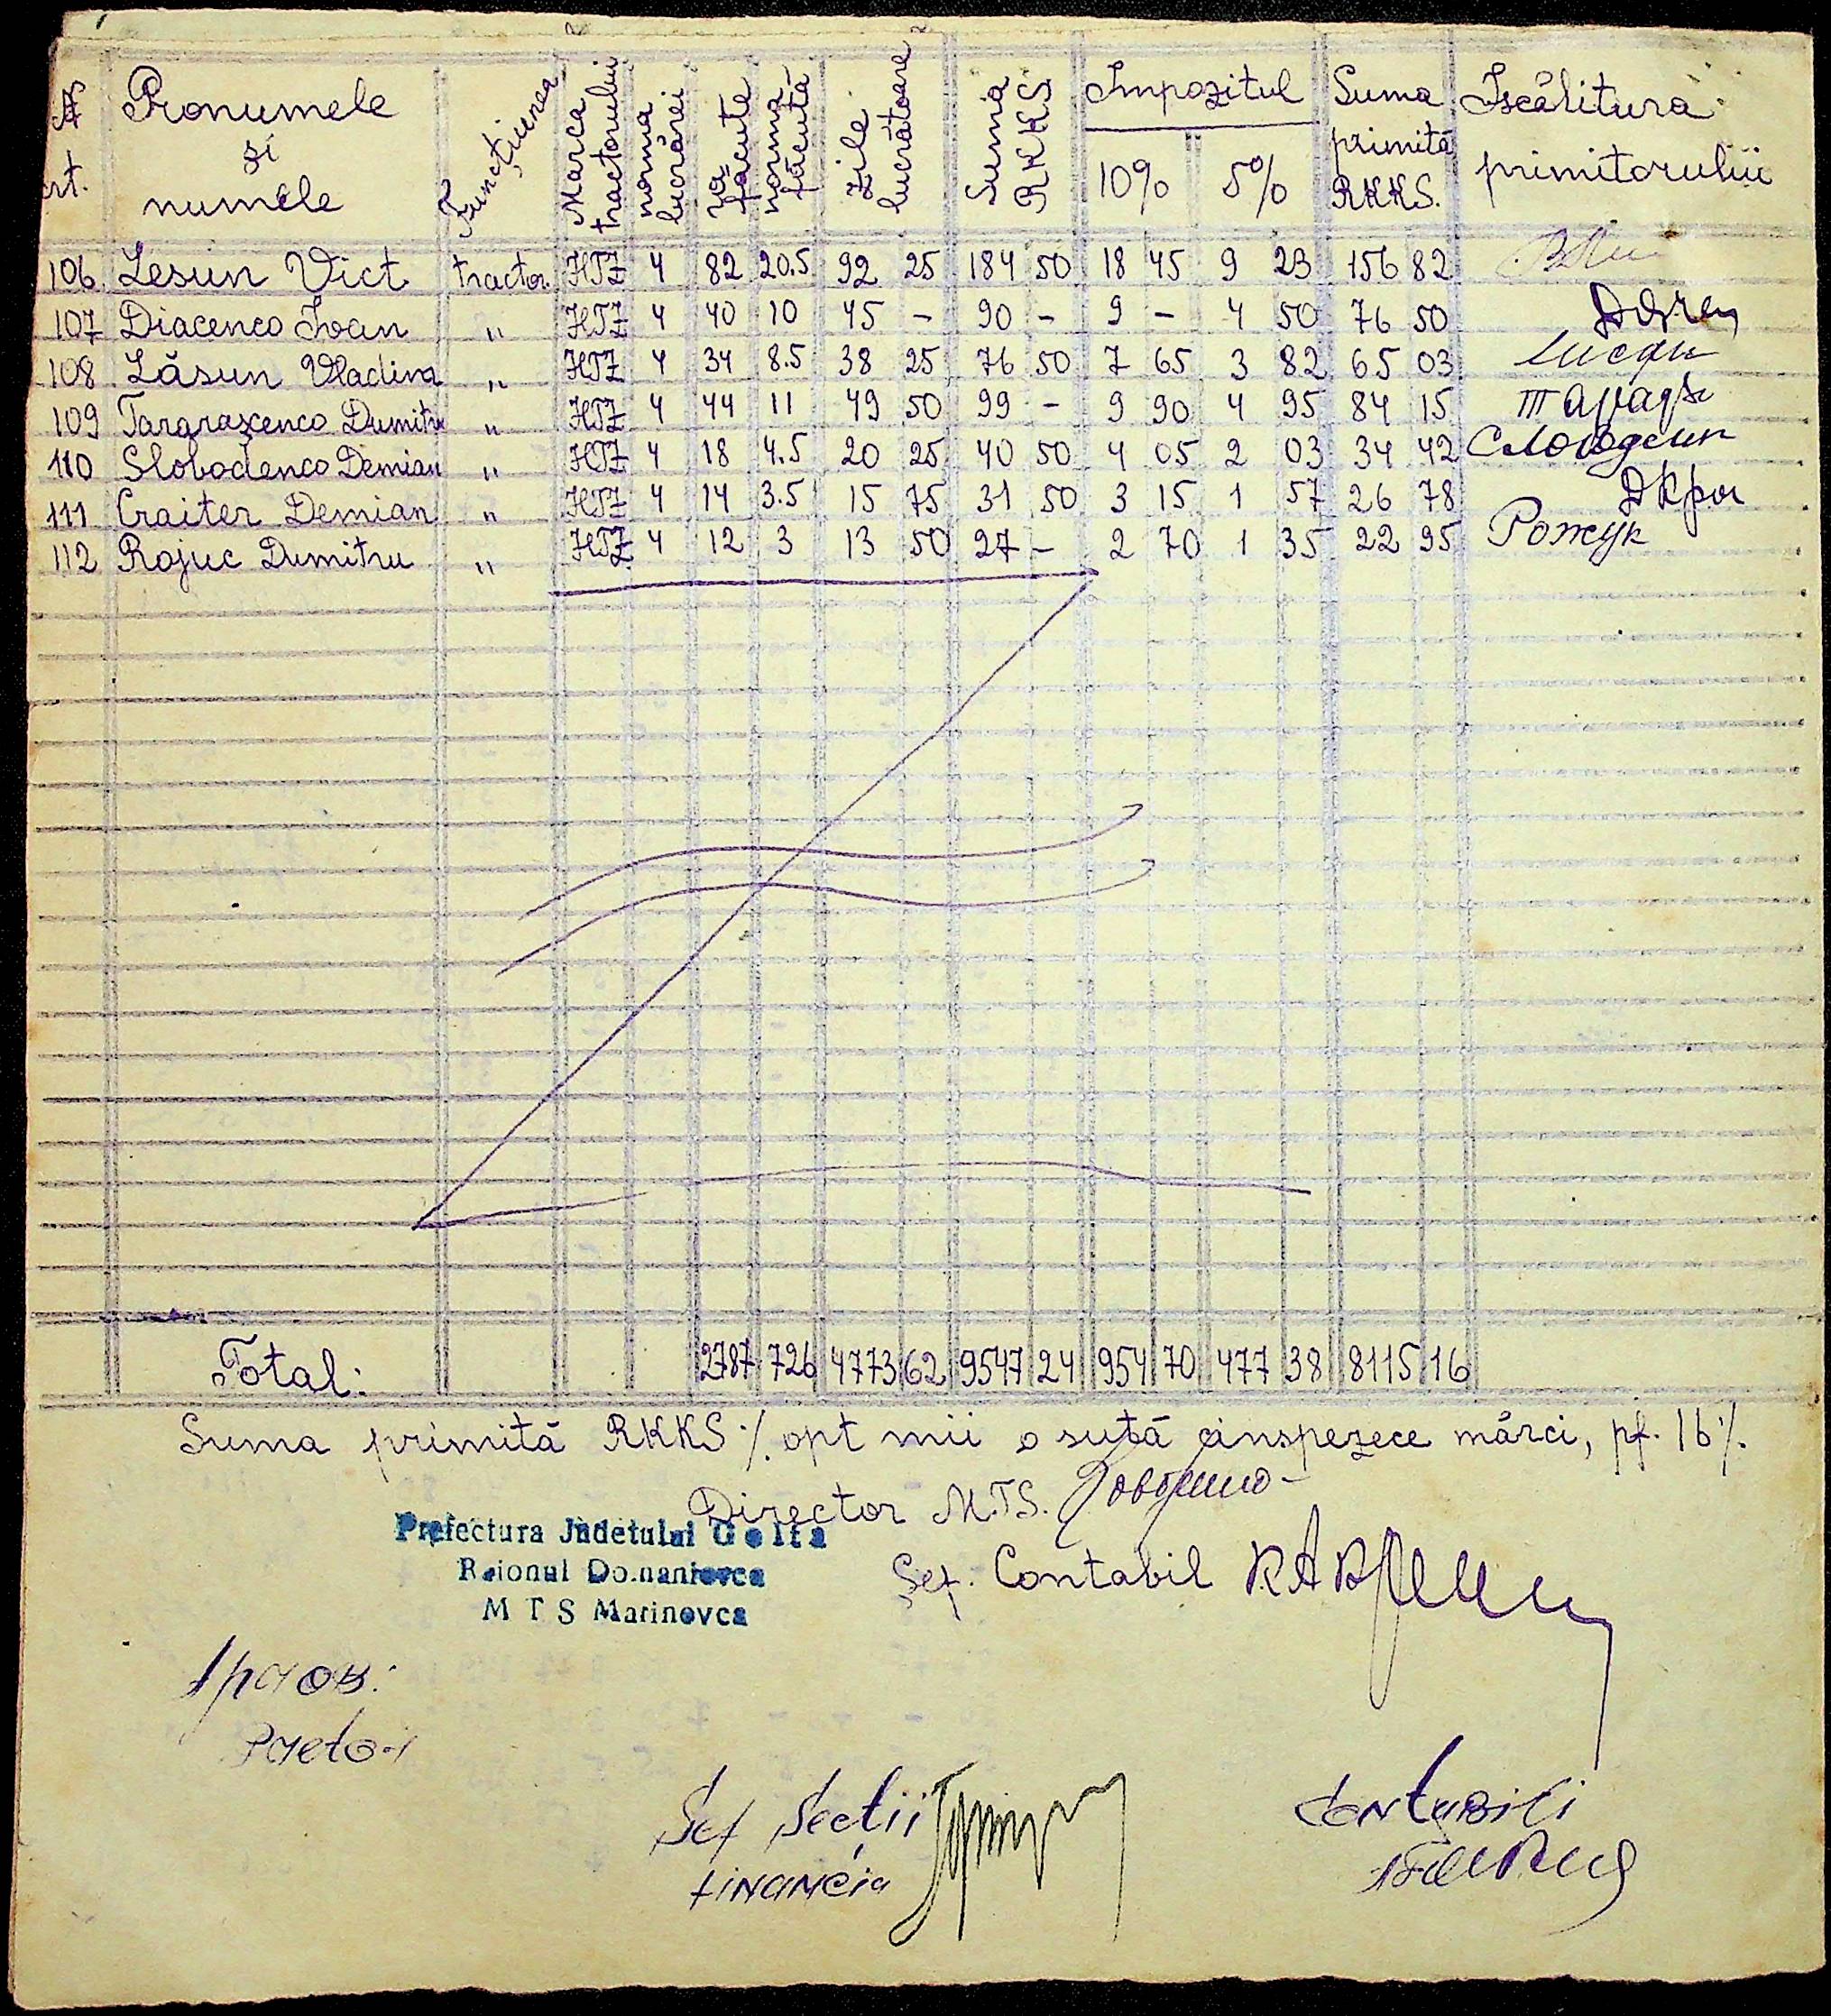 № crt. Pronumele și numele Funcțiunea Marca tractorului norma lucrărei ha făcute norma făcută zile lucrătoare Suma RKKS Impozitul 10% 5% Suma primită RKKS. Iscălitura primitorului
106. Lesun Vict tractor. HTZ 4 82 20.5 92 25 184 50 18 45 9 23 156 82
107 Diacenco Ivan " HTZ 4 40 10 45 - 90 - 9 - 4 50 76 50
108 Lăsun Vladina " HTZ 4 34 8.5 38 25 76 50 7 65 3 82 65 03
109 Tararaxenco Dumitru " HTZ 4 44 11 49 50 99 - 9 90 4 95 84 15
110 Slobodenco Demian " HTZ 4 18 4.5 20 25 40 50 4 05 2 03 34 42
111 Craiter Demian " HTZ 4 14 3.5 15 75 31 50 3 15 1 57 26 78 ДКра
112 Rojuc Dumitru " HTZ 4 12 3 13 50 27 - 2 70 1 35 22 95 Рожук
Total: 2787 726 4773 62 9547 24 954 70 477 38 8115 16
Suma primită RKKS ./. opt mii o sută cinspezece mărci, pf. 16 ./.
Director M.T.S.
Prefectura Județului Golta
Raionul Domaniovca
M T S Marinovca
Șef. Contabil
Pretor
Șef Secții
Financia
Contabili